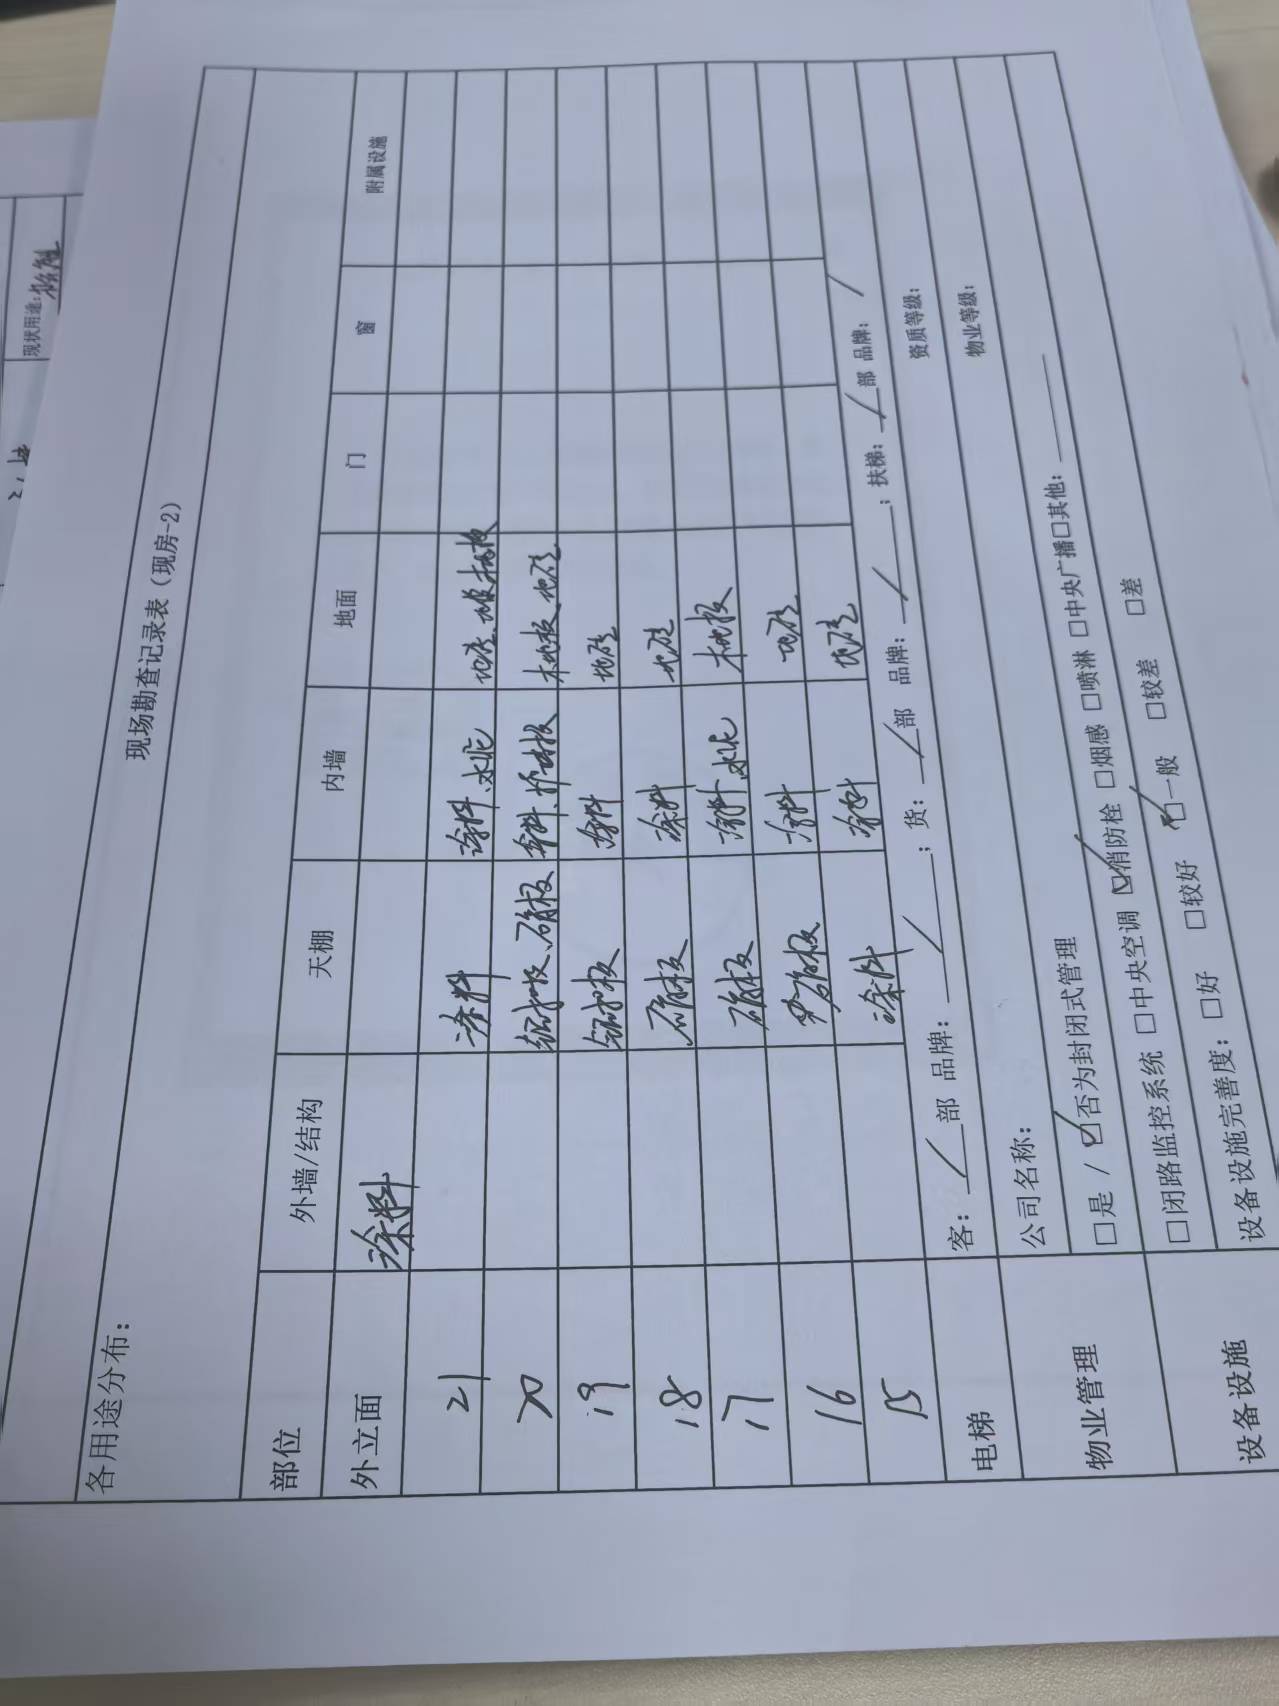 现场勘查记录表（现房-2）
各用途分布：
部位 外墙/结构 天棚 内墙 地面 门 窗 附属设施
外立面 涂料
21 涂料 涂料、水泥 地砖、木地板
20 铝扣板、石膏板 涂料、护墙板 木地板、地砖
19 铝扣板 涂料 地砖
18 石膏板 涂料 地砖
17 石膏板 涂料、水泥 木地板
16 石膏板 涂料 地砖
15 涂料 涂料 地砖
电梯 客：/部 品牌：/；货：/部 品牌：/；扶梯：/部 品牌：/
物业管理 公司名称： 资质等级：
□是 / ☑否为封闭式管理 物业等级：
设备设施 □闭路监控系统 □中央空调 ☑消防栓 □烟感 □喷淋 □中央广播□其他：
设备设施完善度：□好 □较好 ☑一般 □较差 □差
现状用途：